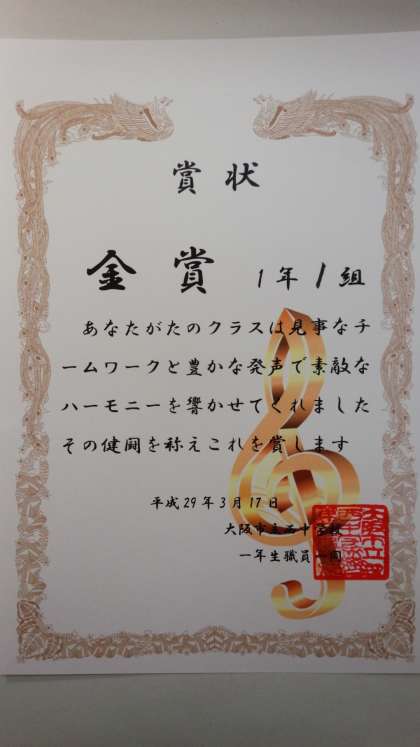 賞状
金賞 1年1組
あなたがたのクラスは見事なチ
ームワークと豊かな発声で素敵な
ハーモニーを響かせてくれました
その健闘を称えこれを賞します
平成29年3月17日
大阪市立西中学校
一年生職員一同